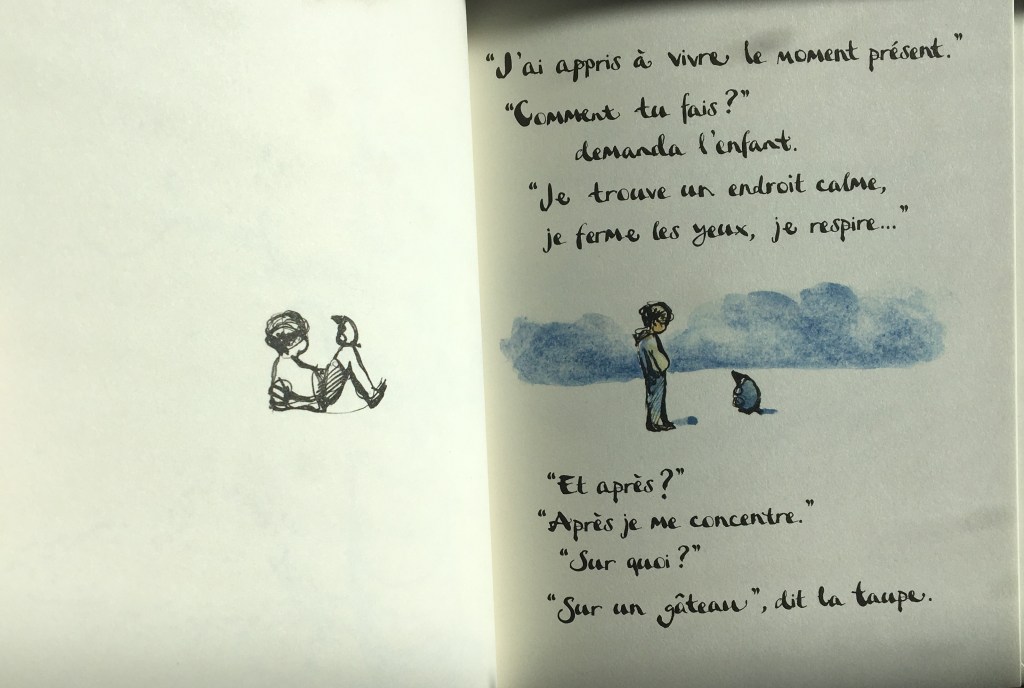 “J'ai appris à vivre le moment présent.”
“Comment tu fais?”
demanda l'enfant.
“Je trouve un endroit calme,
je ferme les yeux, je respire...”
“Et après?”
“Après je me concentre.”
“Sur quoi?”
“Sur un gâteau”, dit la taupe.